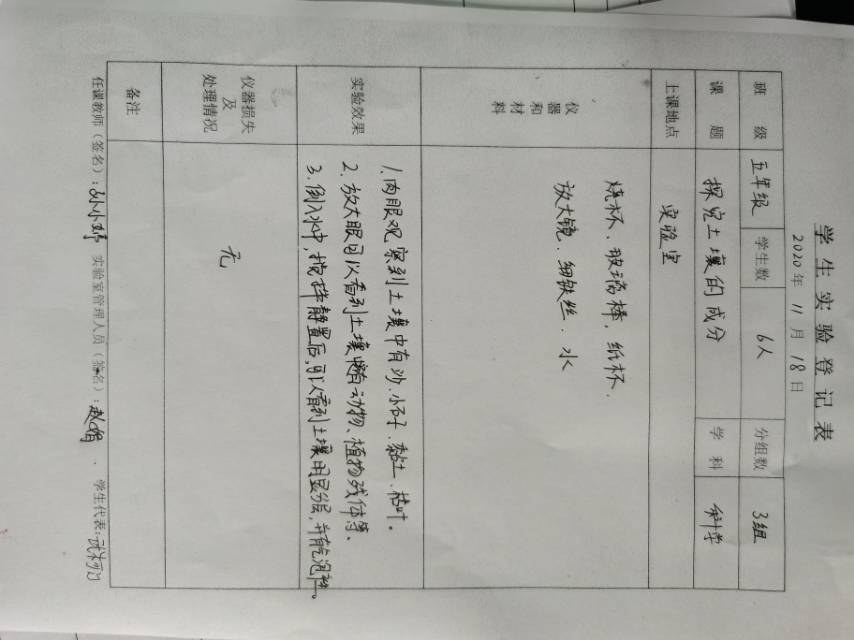 学生实验登记表
2020年 11月 18日
班级 五年级 学生数 6人 分组数 3组
课题 探究土壤的成分 学科 科学
上课地点 实验室
仪器和材料
烧杯、玻璃棒、纸杯、
放大镜、细铁丝、水
实验效果
1.肉眼观察到土壤中有沙、小石子、黏土、枯叶。
2.放大眼可以看到土壤中有动物、植物残体等。
3.倒入水中,搅拌静置后,可以看到土壤明显分层,并有气泡产生。
仪器损失及处理情况 无
备注
任课教师(签名):孙小婷 实验室管理人员(签名): 学生代表: